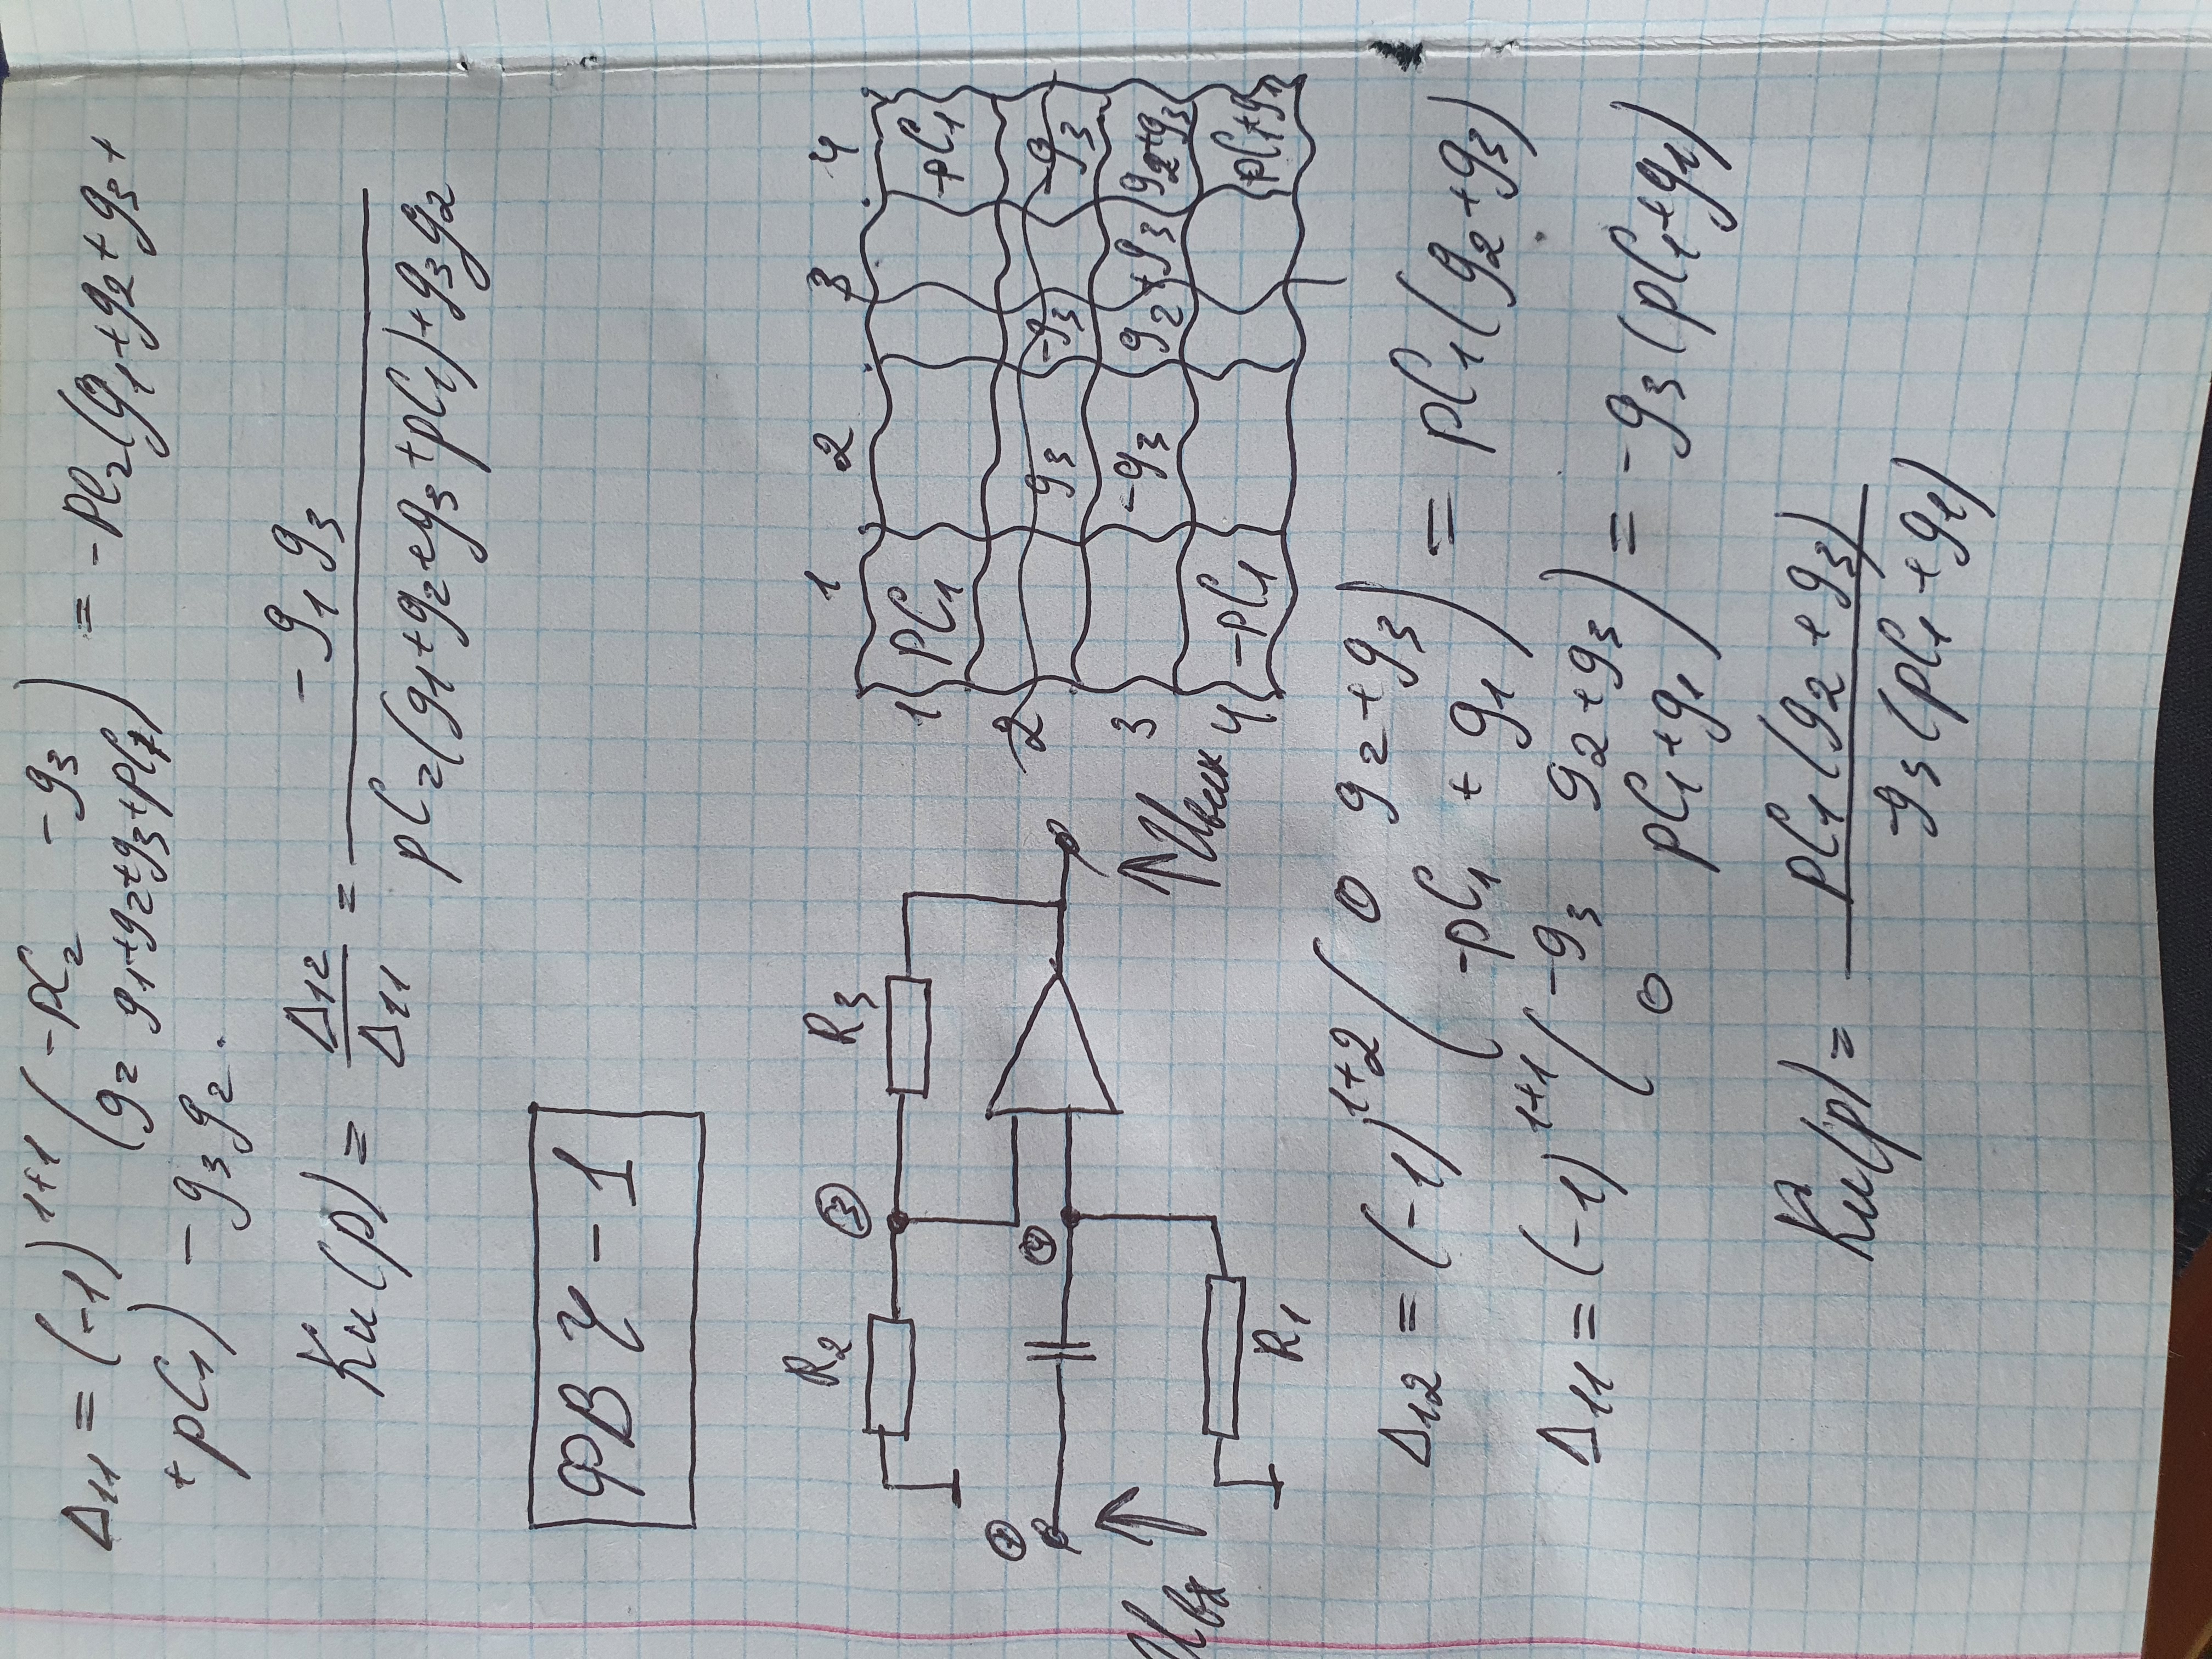 Δ11 = (-1)^1+1 ( -pC2 -g3 ) = -pC2(g1+g2+g3+
g2 g1+g2+g3+pC1
+pC1) - g3g2.
Ku(p) = Δ12/Δ11 = -g1g3 / pC2(g1+g2+g3+pC1)+g3g2
ФВЧ-1
R2 ③ R3
① ④
Uвх
Uвих
R1
1 2 3 4
1 PC1 -pC1
2 g3 -g3 -g3
3 -g3 g2+g3 g2+g3
4 -pC1 pC1+g1
Δ12 = (-1)^1+2 ( 0 g2+g3 ) = pC1(g2+g3)
-pC1 + g1
Δ11 = (-1)^1+1 ( -g3 g2+g3 ) = -g3(pC1+g1)
0 pC1+g1
Ku(p) = pC1(g2+g3) / -g3(pC1+g1)